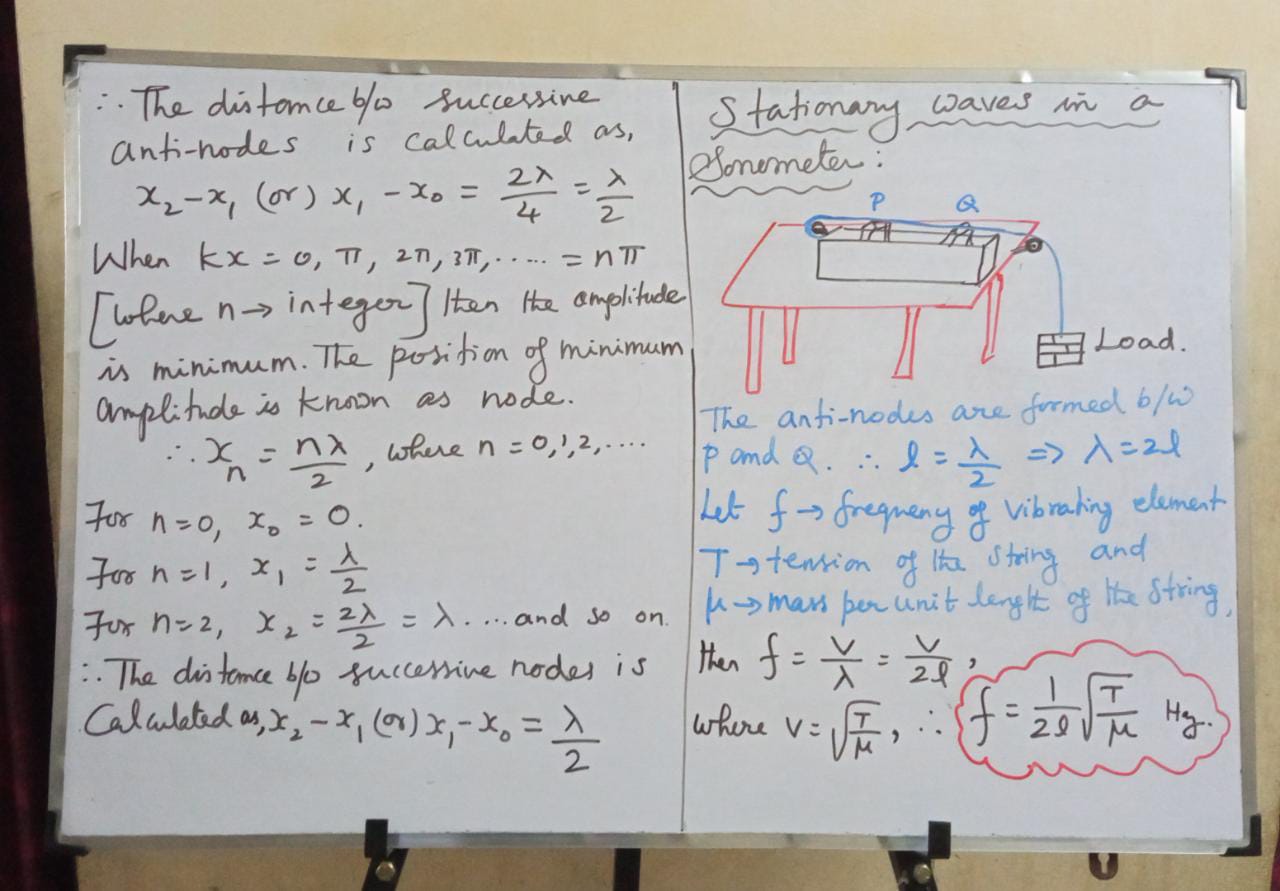 ∴ The distance b/w successive
anti-nodes is calculated as,
x₂-x₁ (or) x₁-x₀ = 2λ/4 = λ/2
When kx = 0, π, 2π, 3π, ...... = nπ
[where n → integer] then the amplitude
is minimum. The position of minimum
amplitude is known as node.
∴ xₙ = nλ/2, where n = 0,1,2,....
For n=0, x₀ = 0.
For n=1, x₁ = λ/2
For n=2, x₂ = 2λ/2 = λ. ...and so on.
∴ The distance b/w successive nodes is
Calculated as, x₂-x₁ (or) x₁-x₀ = λ/2
Stationary waves in a
Sonometer:
P Q
Load.
The anti-nodes are formed b/w
P and Q. ∴ l = λ/2 => λ=2l
Let f → frequency of vibrating element
T → tension of the string and
μ → mass per unit length of the string,
then f = V/λ = V/2l,
where V = √(T/μ), ∴ f = 1/2l √(T/μ) Hz.